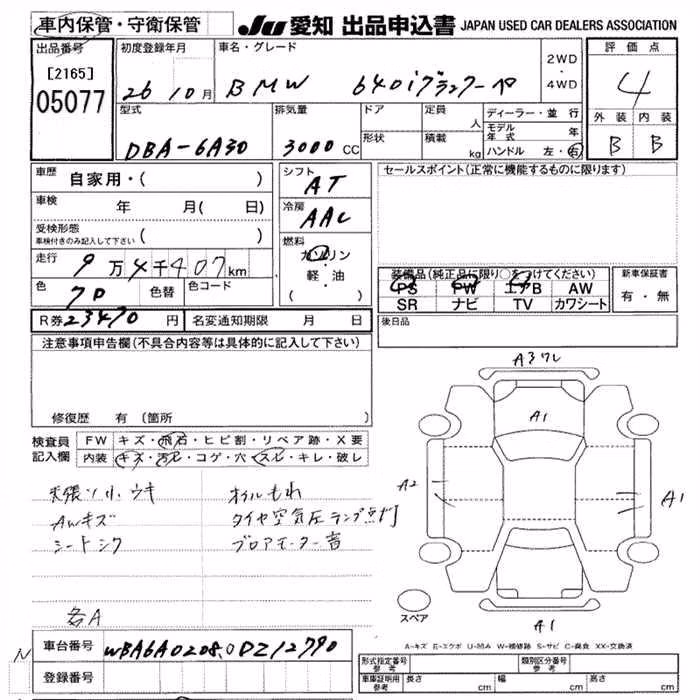 車内保管・守衛保管
JU 愛知 出品申込書 JAPAN USED CAR DEALERS ASSOCIATION
出品番号
[2165]
05077
初度登録年月
26 10月
車名・グレード
BMW 640i グランクーペ
2WD
・
4WD
評価点
4
外装 内装
B B
型式
DBA-6A30
排気量
3000 CC
ドア
形状
定員
人
積載
kg
ディーラー・並行
モデル年式 年
ハンドル 左・右
車歴
自家用・( )
車検
年 月( 日)
受検形態
車検付きのみ記入して下さい ( )
走行
9万4千407km
色
色替
色コード
R券 23470 円
名変通知期限 月 日
シフト
AT
冷房
AAC
燃料
ガソリン
・
軽・油
( )
セールスポイント(正常に機能するものに限ります)
装備品(純正品に限り○をつけてください)
PS PW エアB AW
SR ナビ TV カワシート
新車保証書
有・無
後日品
注意事項申告欄(不具合内容等は具体的に記入して下さい)
修復歴 有 (箇所 )
検査員
記入欄
FW キズ・飛石・ヒビ割・リペア跡・X要
内装 キズ・汚レ・コゲ・穴・スレ・キレ・破レ
天張ソリ小ウキ
AWキズ
シートシワ
各A
オイルもれ
タイヤ空気圧ランプ点灯
ブロアモーター音
A3ワレ
A1
A2
A1
A1
スペア
A-キズ E-エクボ U-凹み W-補修跡 S-サビ C-腐食 XX-交換済
N
車台番号
WBA6A02080DZ12790
登録番号
形式指定番号
参考
類別区分番号
参考
車庫証明用
参考
長さ cm
幅 cm
高さ cm